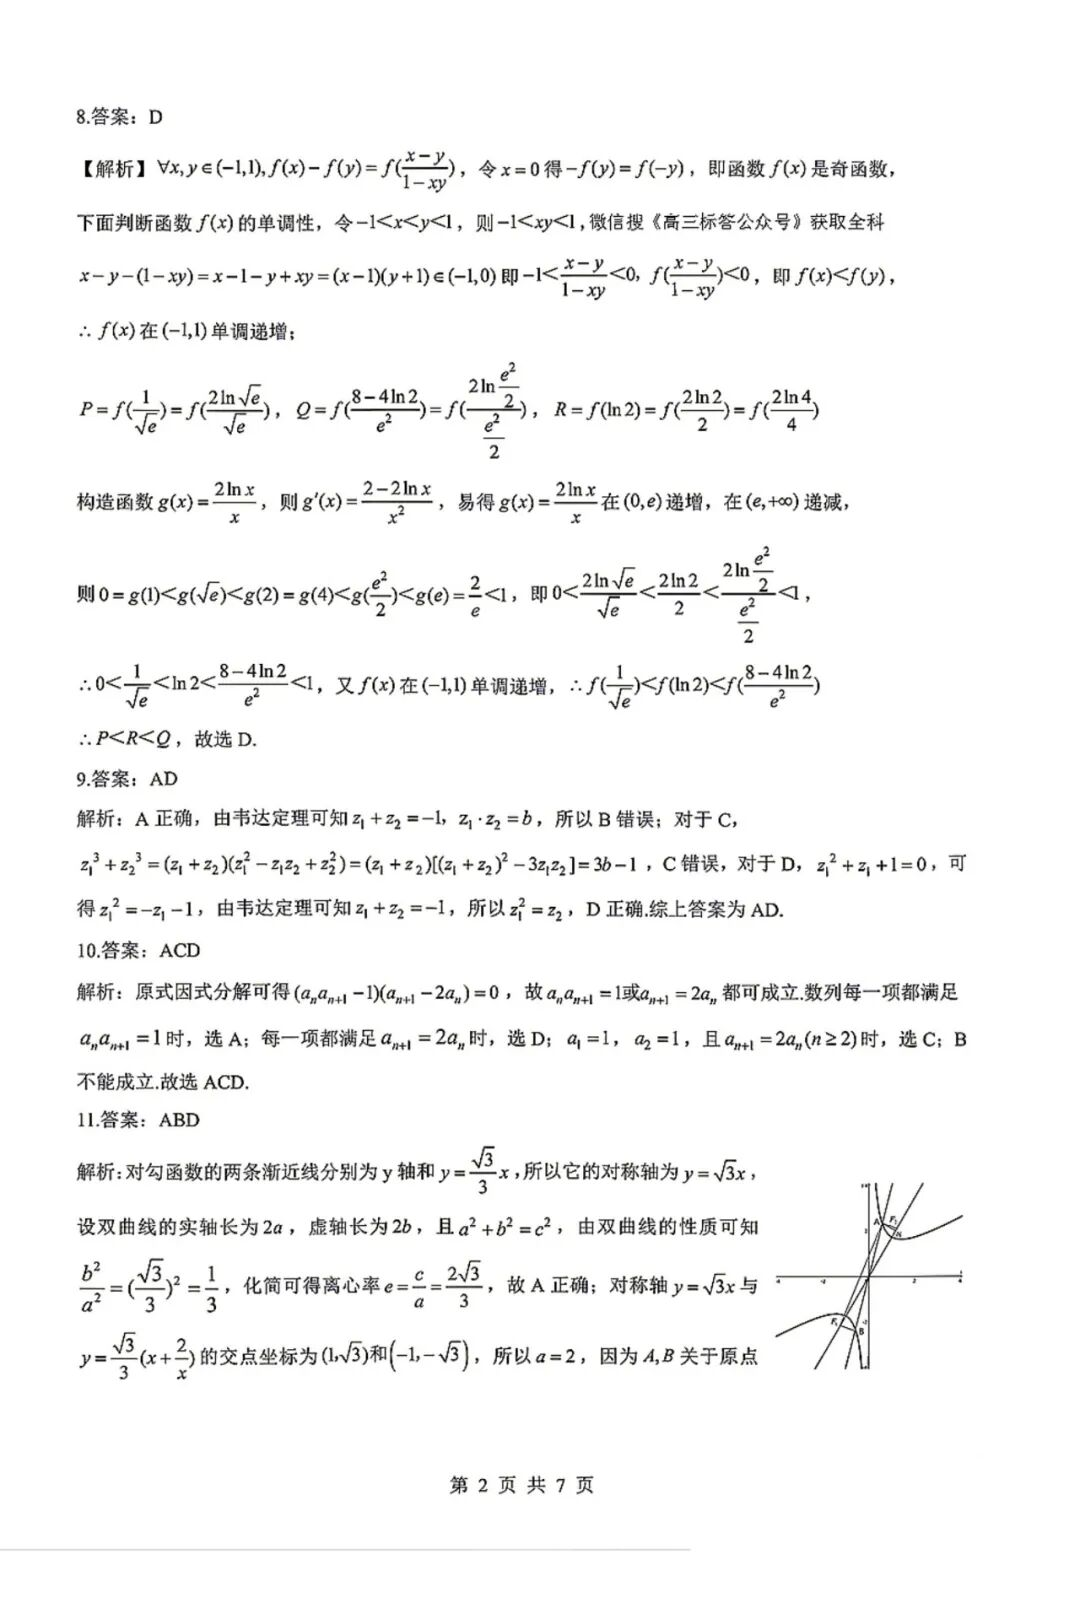 8.答案：D
【解析】∀x,y∈(-1,1),f(x)-f(y)=f((x-y)/(1-xy))，令x=0得-f(y)=f(-y)，即函数f(x)是奇函数，
下面判断函数f(x)的单调性，令-1<x<y<1，则-1<xy<1,微信搜《高三标答公众号》获取全科
x-y-(1-xy)=x-1-y+xy=(x-1)(y+1)∈(-1,0)即-1<(x-y)/(1-xy)<0，f((x-y)/(1-xy))<0，即f(x)<f(y)，
∴f(x)在(-1,1)单调递增；
P=f(1/√e)=f(2ln√e/√e)，Q=f((8-4ln2)/e²)=f(2ln(e²/2)/(e²/2))，R=f(ln2)=f(2ln2/2)=f(2ln4/4)
构造函数g(x)=2lnx/x，则g′(x)=(2-2lnx)/x²，易得g(x)=2lnx/x在(0,e)递增，在(e,+∞)递减，
则0=g(1)<g(√e)<g(2)=g(4)<g(e²/2)<g(e)=2/e<1，即0<2ln√e/√e<2ln2/2<2ln(e²/2)/(e²/2)<1，
∴0<1/√e<ln2<(8-4ln2)/e²<1，又f(x)在(-1,1)单调递增，∴f(1/√e)<f(ln2)<f((8-4ln2)/e²)
∴P<R<Q，故选D.
9.答案：AD
解析：A正确，由韦达定理可知z₁+z₂=-1，z₁·z₂=b，所以B错误；对于C，
z₁³+z₂³=(z₁+z₂)(z₁²-z₁z₂+z₂²)=(z₁+z₂)[(z₁+z₂)²-3z₁z₂]=3b-1，C错误，对于D，z₁²+z₁+1=0，可
得z₁²=-z₁-1，由韦达定理可知z₁+z₂=-1，所以z₁²=z₂，D正确.综上答案为AD.
10.答案：ACD
解析：原式因式分解可得(aₙaₙ₊₁-1)(aₙ₊₁-2aₙ)=0，故aₙaₙ₊₁=1或aₙ₊₁=2aₙ都可成立.数列每一项都满足
aₙaₙ₊₁=1时，选A；每一项都满足aₙ₊₁=2aₙ时，选D；a₁=1，a₂=1，且aₙ₊₁=2aₙ(n≥2)时，选C；B
不能成立.故选ACD.
11.答案：ABD
解析:对勾函数的两条渐近线分别为y轴和y=(√3/3)x,所以它的对称轴为y=√3x，
设双曲线的实轴长为2a，虚轴长为2b，且a²+b²=c²，由双曲线的性质可知
b²/a²=(√3/3)²=1/3，化简可得离心率e=c/a=2√3/3，故A正确；对称轴y=√3x与
y=(√3/3)(x+2/x)的交点坐标为(1,√3)和(-1,-√3)，所以a=2，因为A,B关于原点
第 2 页 共 7 页